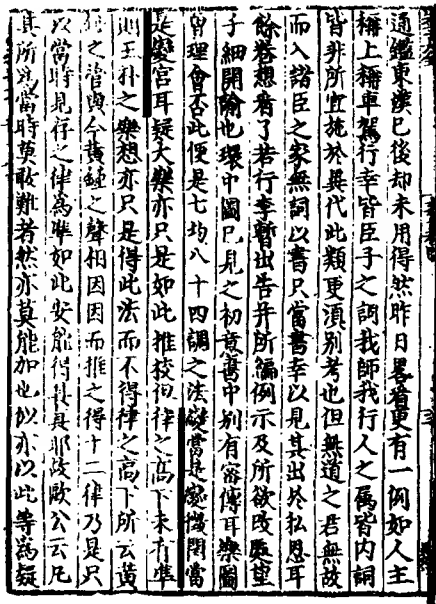 通鑑東漢已後却未用得然昨日畧看更有一例如人主
稱上稱車駕行幸皆臣子之詞我師我行人之屬皆内詞
皆非所宜施於異代此類更湏别考也但無道之君無故
而入諸臣之家無詞以書只當書幸以見其出於私恩耳
餘卷想看了若行李暫出告并所編例示及所欲改處望
子細開喻也環中圖已見之初意書中别有密傳耳樂圖
曽理會否此便是七均八十四調之法
是變宮耳疑大樂亦只是如此推校但律之高下未有凖
則王朴之樂想亦只是得此法而不得律之高下所云黄
鍾之管與今黄鍾之聲相因因而推之得十二律乃是只
以當時見存之律為凖如此安能得其真耶故歐公云凡
其所爲當時莫敢難者然亦莫能加也似亦以此等為疑